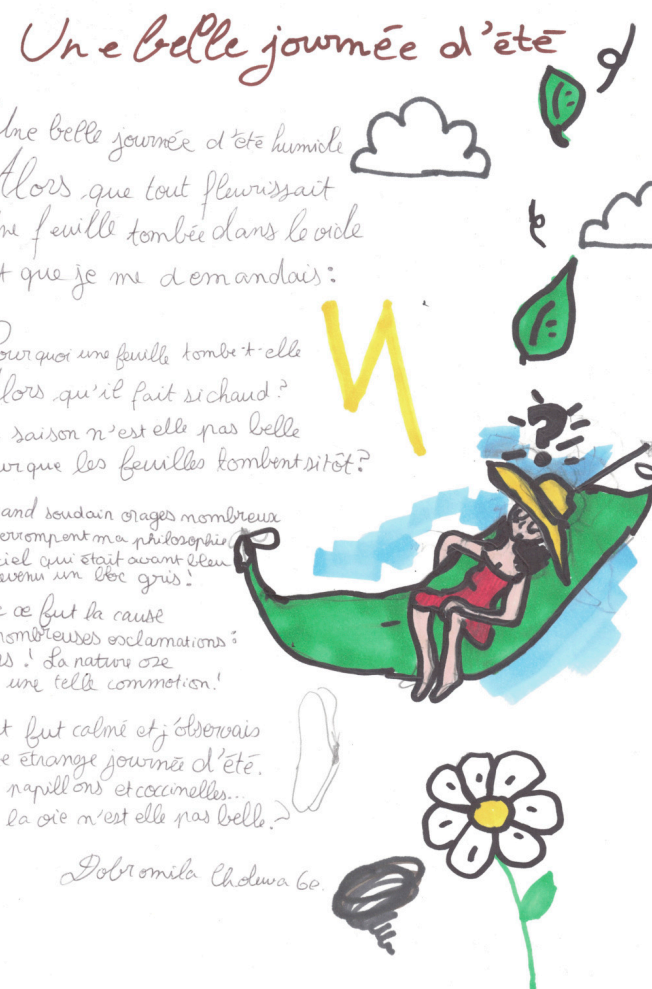 Une belle journée d'été
Une belle journée d'été humide
Alors que tout fleurissait
ne feuille tombée dans le vide
t que je me demandais:
Pourquoi une feuille tombe-t-elle
Alors qu'il fait si chaud?
saison n'est elle pas belle
ur que les feuilles tombent si tôt?
and soudain orages nombreux
errompent ma philosophie
ciel qui était avant bleu
evenu un bloc gris!
ce fut la cause
nombreuses exclamations:
s! La nature ose
une telle commotion!
t fut calmé et j'observais
e étrange journée d'été.
papillons et coccinelles...
la vie n'est elle pas belle?
Dobromila Cholewa 6e.
?